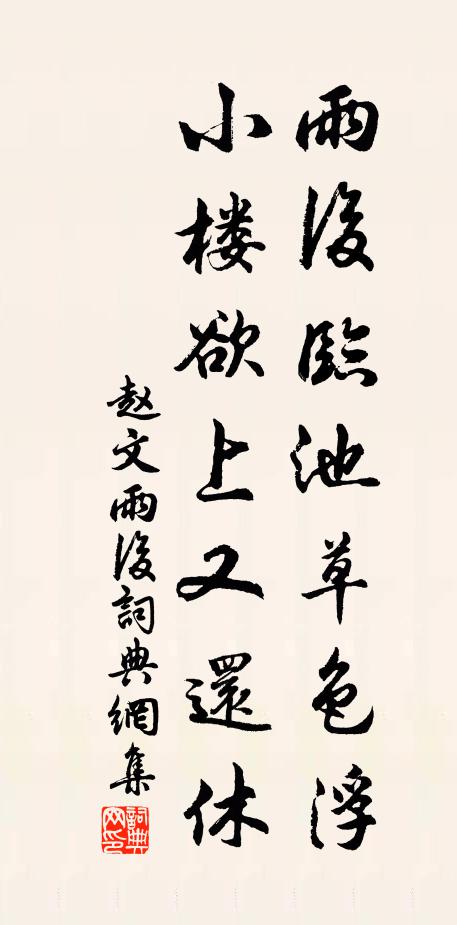 雨後臨池草色浮
小楼欲上又還休
赵文雨後詞典網集
詞典网印